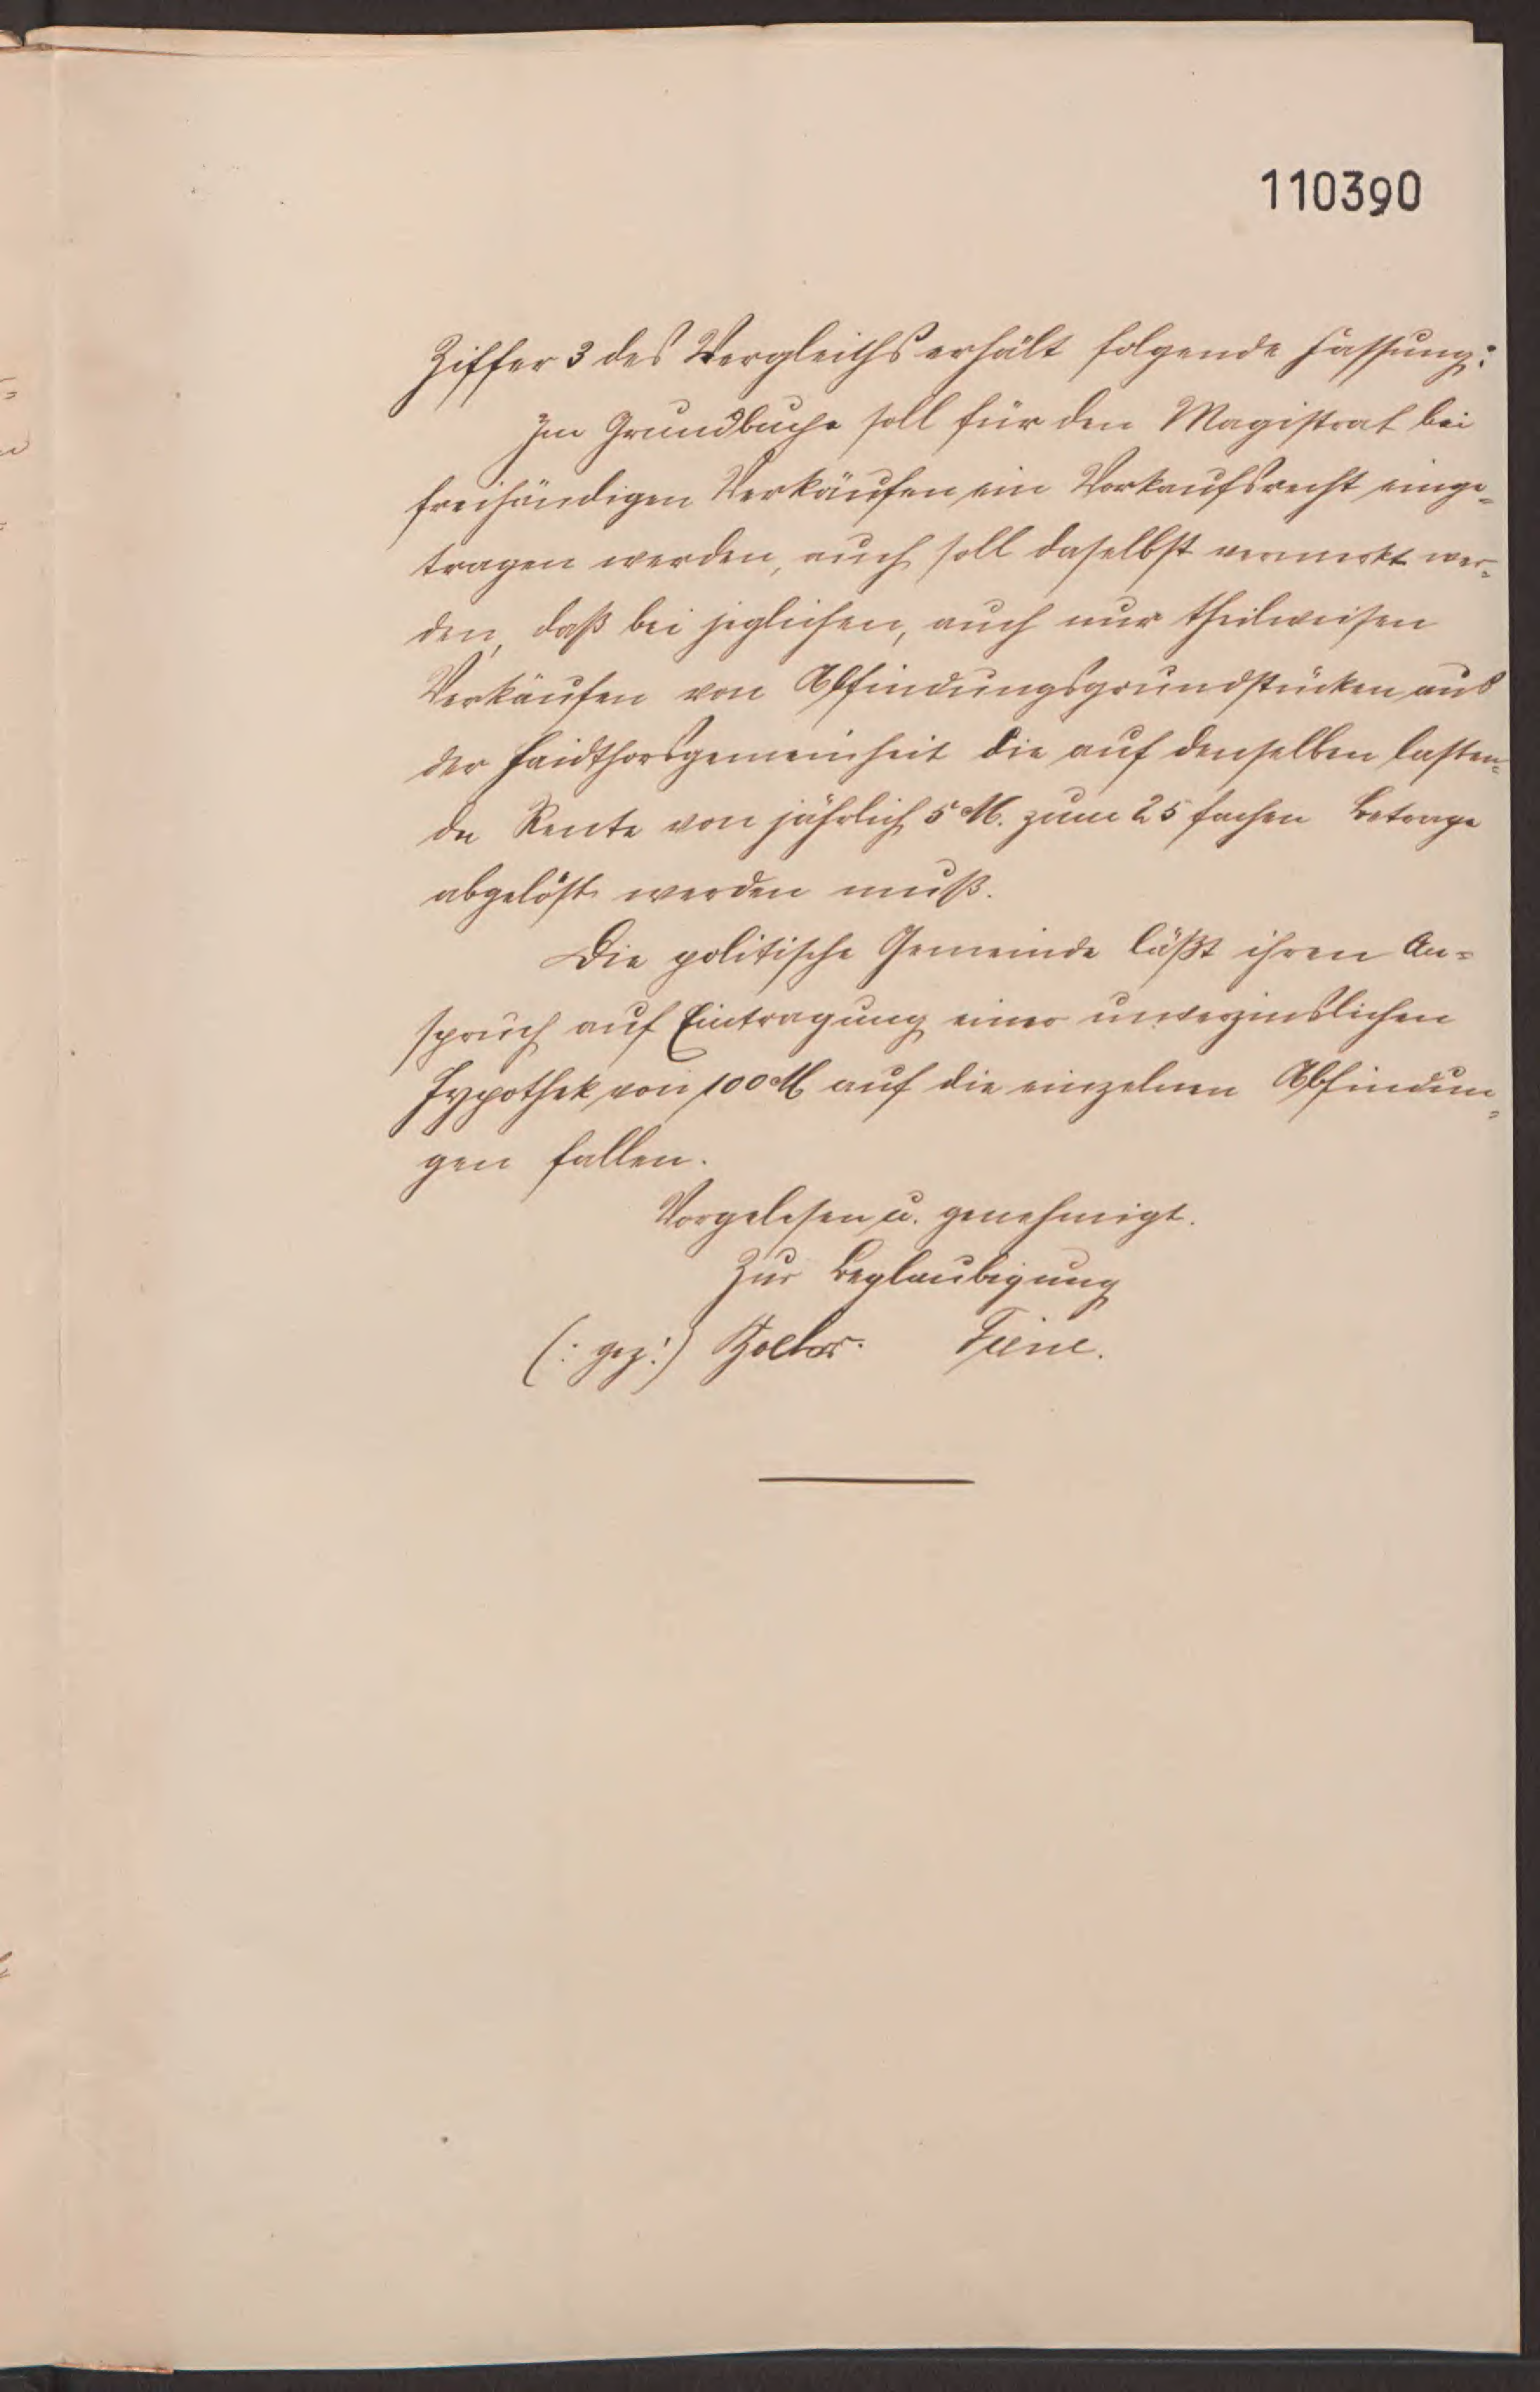 110390
Ziffer 3 des Vergleichs erhält folgende Fassung:
Im Grundbuche soll für den Magistrat bei
freihändigen Verkäufen ein Vorkaufsrecht einge=
tragen werden, auch soll daselbst vermerkt wer=
den, daß bei jeglichen, auch nur theilweisen
Verkäufen von Abfindungsgrundstücken aus
der Haidthorsgemeinheit die auf denselben lasten=
de Rente von jährlich 5 M. zum 25 fachen Betrage
abgelöst werden muß.
Die politische Gemeinde läßt ihren An=
spruch auf Eintragung einer unverzinslichen
Hypothek von 100 M auf die einzelnen Abfindun=
gen fallen.
Vorgelesen u. genehmigt.
Zur Beglaubigung
(: gez:)